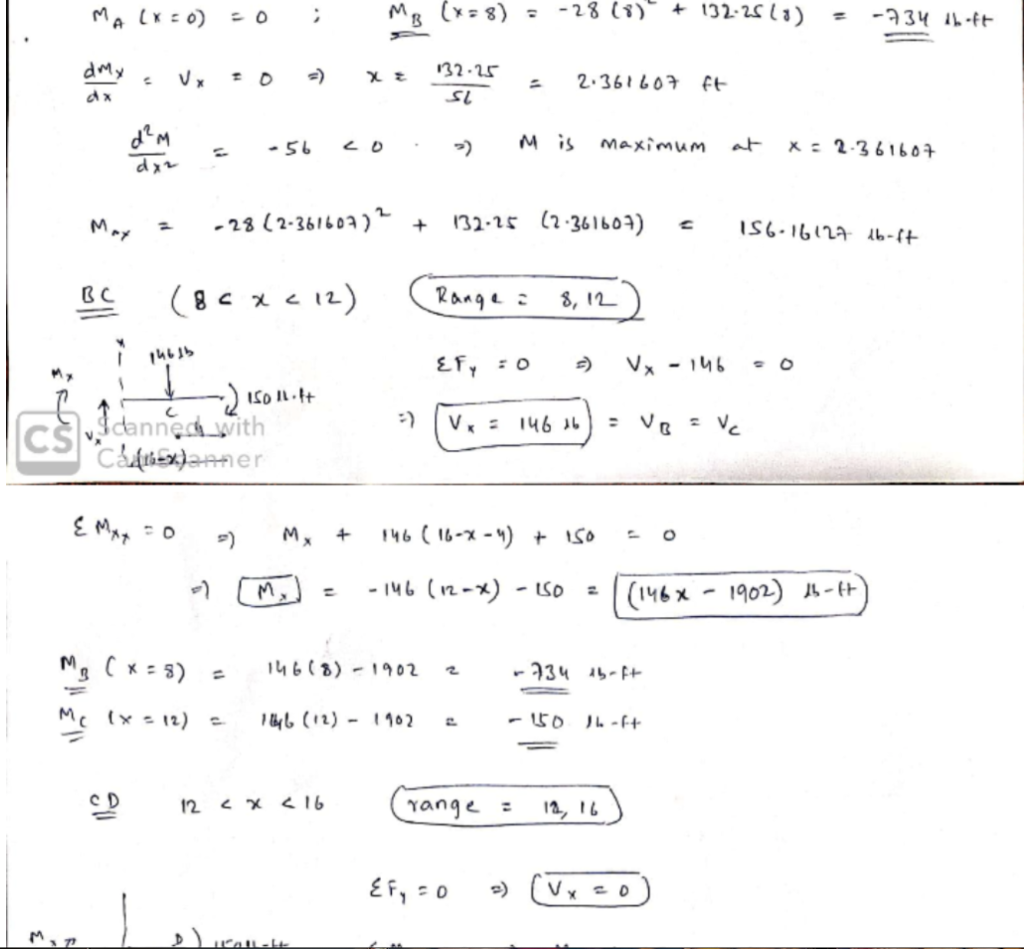 M_A (x=0) = 0 ; M_B (x=8) = -28 (8)² + 132.25 (8) = -734 lb-ft
dMx/dx = Vx = 0 ⇒ x = 132.25/56 = 2.361607 ft
d²M/dx² = -56 < 0 . ⇒ M is maximum at x = 2.361607
Max = -28 (2.361607)² + 132.25 (2.361607) = 156.16127 lb-ft
BC (8 < x < 12) Range = 8, 12
x 146 lb
Mx
ΣFy = 0 ⇒ Vx - 146 = 0
150 lb.ft
C
Vx
⇒ Vx = 146 lb = V_B = V_C
4
(16-x)
CS Scanned with
CamScanner
ΣMxx = 0 ⇒ Mx + 146 (16-x-4) + 150 = 0
⇒ Mx = -146 (12-x) - 150 = (146x - 1902) lb-ft
M_B (x=8) = 146(8) - 1902 = -734 lb-ft
M_C (x=12) = 146 (12) - 1902 = -150 lb-ft
CD 12 < x < 16 range = 12, 16
ΣFy = 0 ⇒ Vx = 0
D